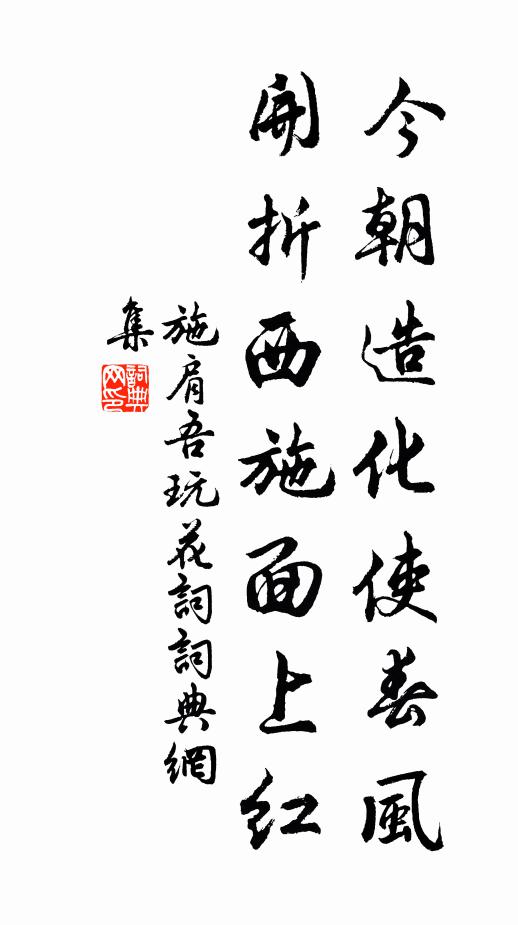 今朝造化使春風
開折西施面上紅
施肩吾玩花詞詞典網
集
詞典
网印